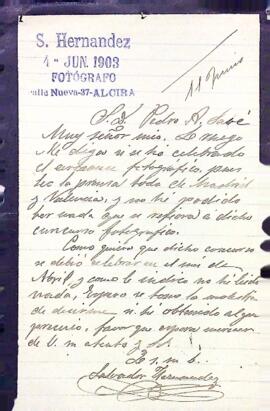 S. Hernandez
1 - JUN. 1903
FOTÓGRAFO
Calle Nueva-37-ALCIRA
11 Junio
S. D. Pedro A.
Muy señor mio. Le ruego
Me diga si se ha celebrado
el fotográfico, pues
leo la prensa toda de Madrid
y Valencia, y no he podido
ber nada que se refiera a dicho
concurso fotográfico.
Como quiera que dicho concurso
se debió celebrar en el mes de
Abril, y como le indico no hé leido
nada, Espero se tome la molestia
de decirme si he obtenido algun
favor que espera merecer
de V. su atento y S.S.
S. m. b.
Salvador Hernandez